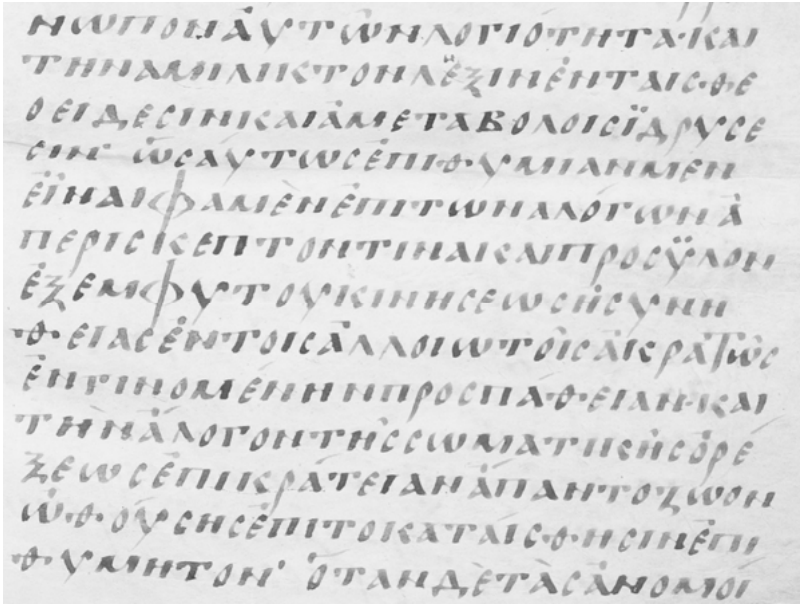 ΝΩΠΟΝἈΥΤῶΝΛΟΓΙΟΤΗΤΑ·ΚΑΙ
ΤΗΝΑΜΙΛΙΚΤΟΝΛἝΞΙΝἘΝΤΑΙΣ·ΘΕ
ΟΕΙΔΕΣΙΝΚΑΙἈΜΕΤΑΒΟΛΟΙΣΪΔΡΥΣΕ
ΣΙΝ· ὩΣΑΥΤΩΣἘΠΙΘΥΜΙΑΝΜΕΝ
ΕἾΝΑΙΦΑΜῈΝἘΠΙΤΩΝΑΛΌΓΩΝἈ
ΠΕΡΙΣΚΕΠΤΟΝΤΙΝΑΚΑΙΠΡΟΣΫΛΟΝ
ἘΞΕΜΦΥΤΟΥΚΙΝΗΣΕΩΣἨΣΥΝΗ
ΘΕΙΑΣἘΝΤΟΙΣἈΛΛΟΙΩΤΟῖΣἈΚΡΑΤῶΣ
ἘΝΓΙΝΟΜΈΝΗΝΠΡΟΣΠΑΘΕΙΑΝ·ΚΑΙ
ΤΗΝἌΛΟΓΟΝΤῆΣΣΩΜΑΤΙΚῆΣὈΡΈ
ΞΕΩΣἘΠΙΚΡΆΤΕΙΑΝἍΠΑΝΤΟΖΩΟΝ
ὨΘΟΎΣΗΣἘΠΙΤΟΚΑΤΑΙΣΘΗΣΙΝἘΠΙ
ΘΥΜΗΤΟΝ· ὍΤΑΝΔῈΤᾺΣἈΝΟΜΟΙ